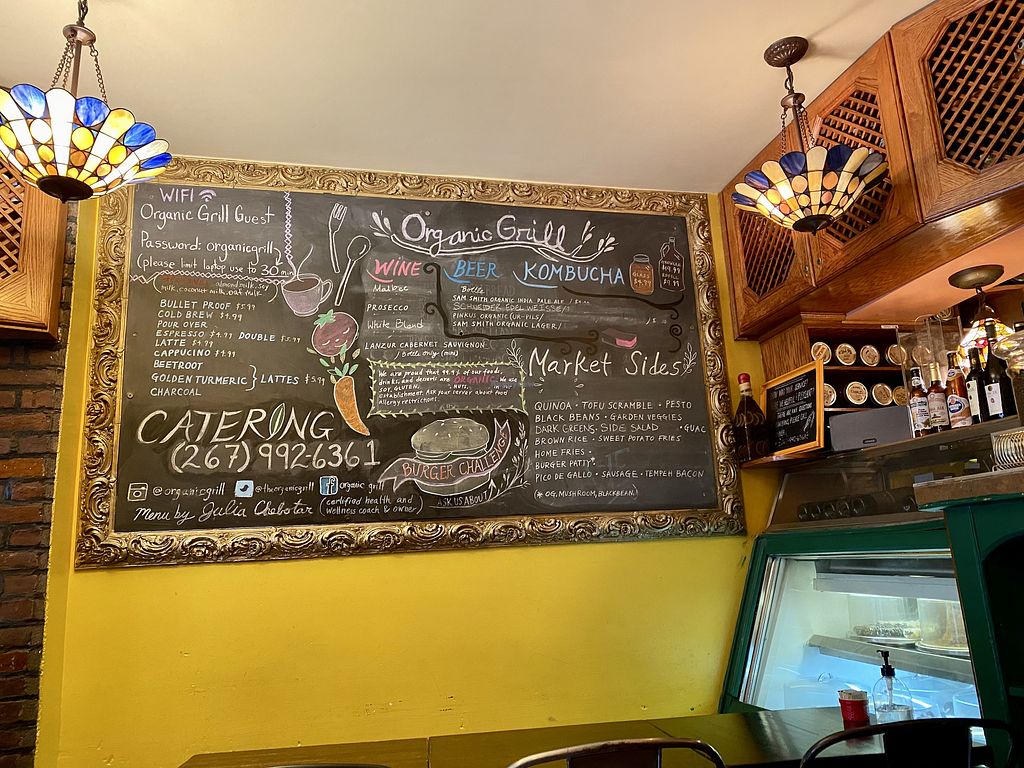 WIFI
Organic Grill Guest
Password: organicgrill
(please limit laptop use to 30 min)
almond milk, soy
milk, coconut milk, oat milk
BULLET PROOF $5.99
COLD BREW $4.99
POUR OVER
ESPRESSO $4.99 DOUBLE $5.99
LATTE
CAPPUCINO
BEETROOT
GOLDEN TURMERIC } LATTES $5.99
CHARCOAL
CATERING
(267) 992-6361
@organicgrill @theorganicgrill organic grill
Menu by Julia Chebotar (certified health and
wellness coach & owner)
Organic Grill
WINE
Malbec
PROSECCO
White Blend
LANZUR CABERNET SAUVIGNON
/ Bottle only (mini)
BEER
Bottle
SAM SMITH ORGANIC INDIA PALE ALE
SCHNEIDER EDEL WEISSE
PINKUS ORGANIC (UR-PILS)
SAM SMITH ORGANIC LAGER
KOMBUCHA
GLASS
GROWLER
We are proud that 99.9% of our foods,
drinks, and desserts are ORGANIC. We use
SOY, GLUTEN, NUTS, in our
establishment. Ask your server about food
Allergy restrictions.
BURGER CHALLENGE
ASK US ABOUT
Market Sides
QUINOA · TOFU SCRAMBLE · PESTO
BLACK BEANS · GARDEN VEGGIES
DARK GREENS · SIDE SALAD · GUAC
BROWN RICE · SWEET POTATO FRIES
HOME FRIES ·
BURGER PATTY*
PICO DE GALLO · SAUSAGE · TEMPEH BACON
(* OG, MUSHROOM, BLACKBEAN)